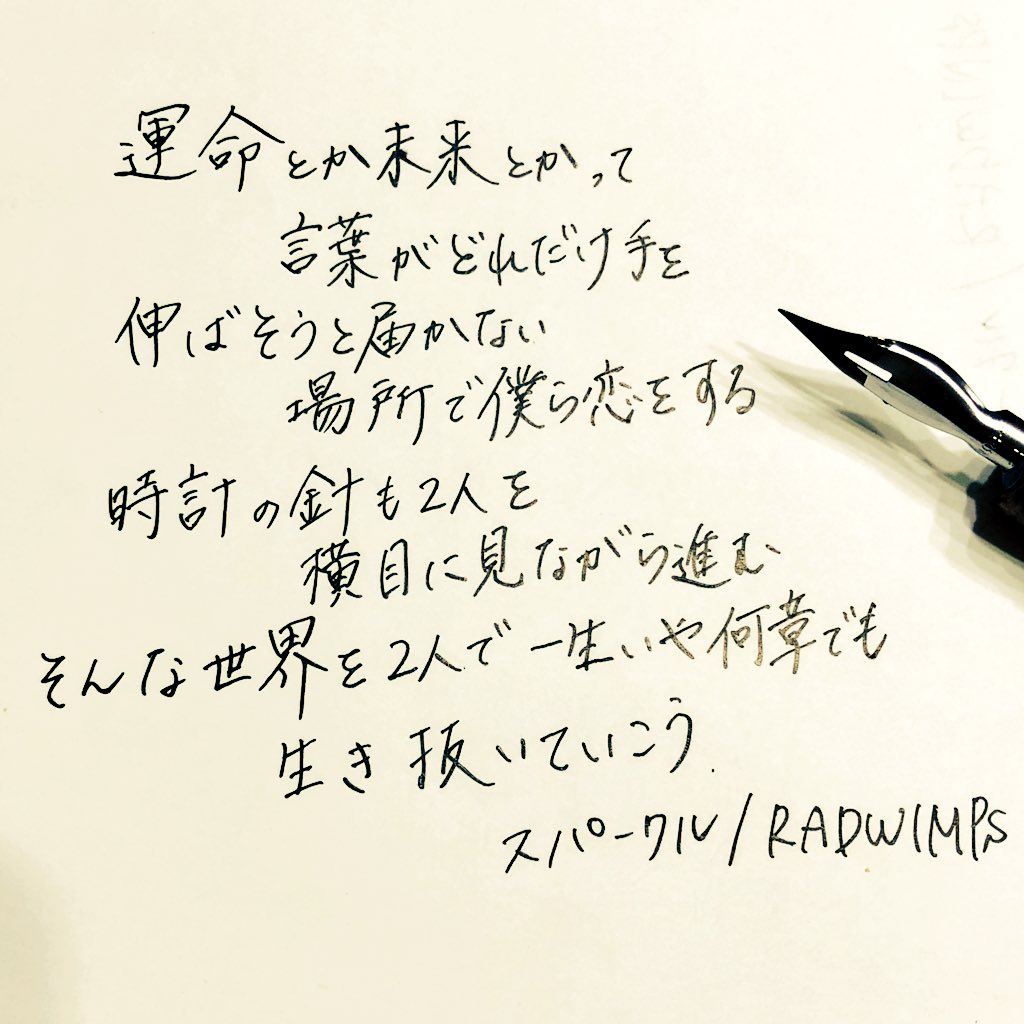 運命とか未来とかって
言葉がどれだけ手を
伸ばそうと届かない
場所で僕ら恋をする
時計の針も2人を
横目に見ながら進む
そんな世界を2人で一生いや何章でも
生き抜いていこう.
スパークル/RADWIMPs